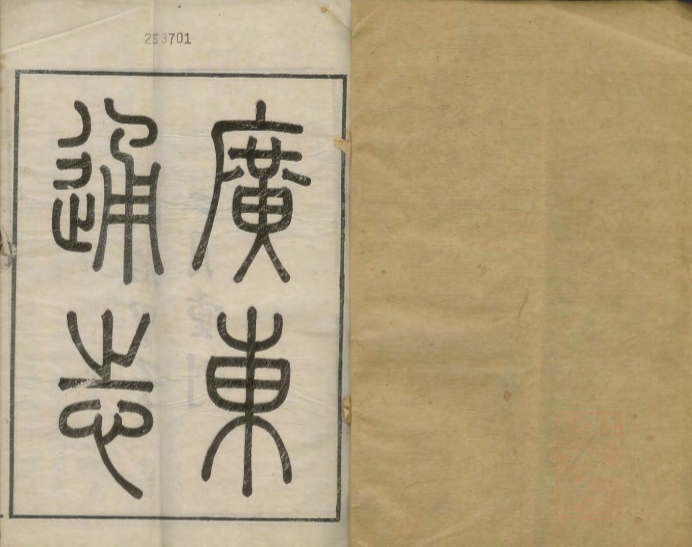 253701
廣東
通志